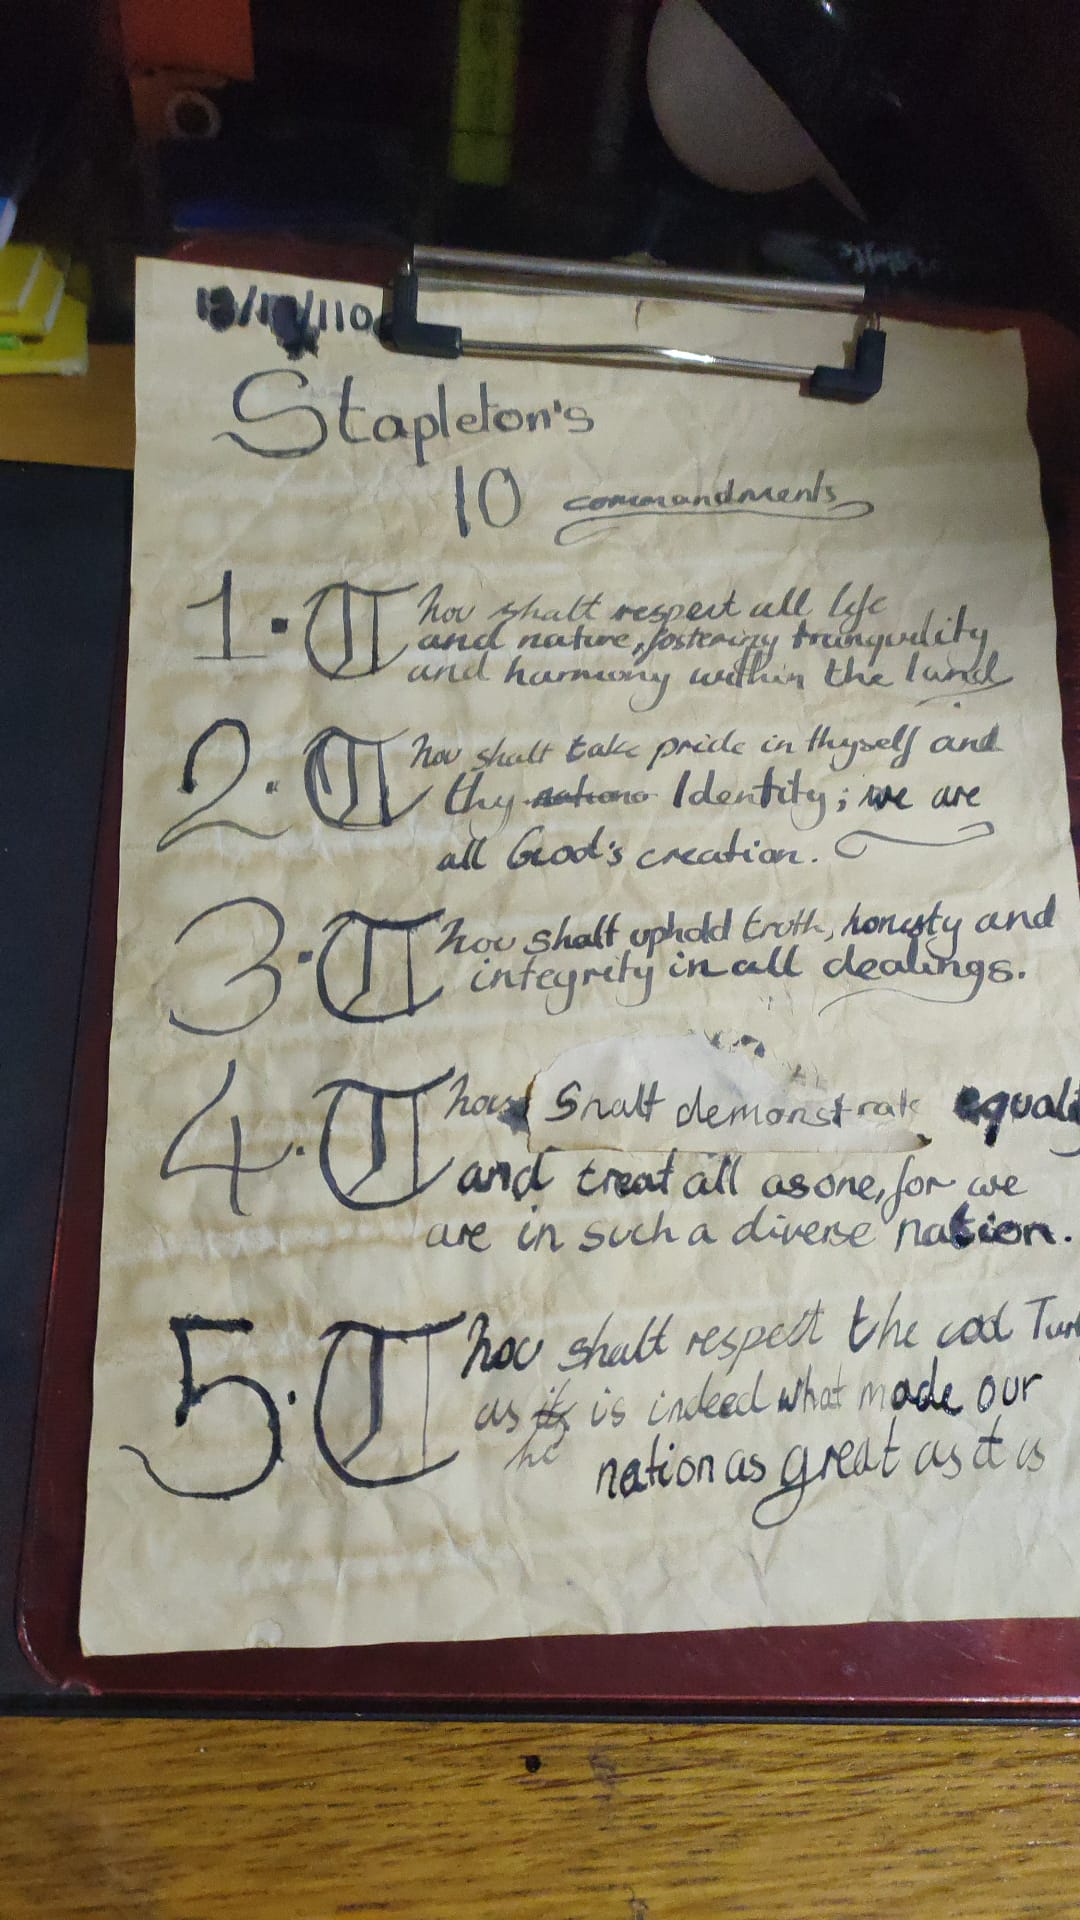 Stapleton's
10 commandments
1. Thou shalt respect all life
and nature, fostering tranquility
and harmony within the land
2. Thou shalt take pride in thyself and
thy nations Identity; we are
all God's creation.
3. Thou shalt uphold truth, honesty and
integrity in all dealings.
4. Thou Shalt demonstrate
and treat all as one, for we
are in such a diverse nation.
5. Thou shalt respect the
as its is indeed what made our
he
nation as great as it is